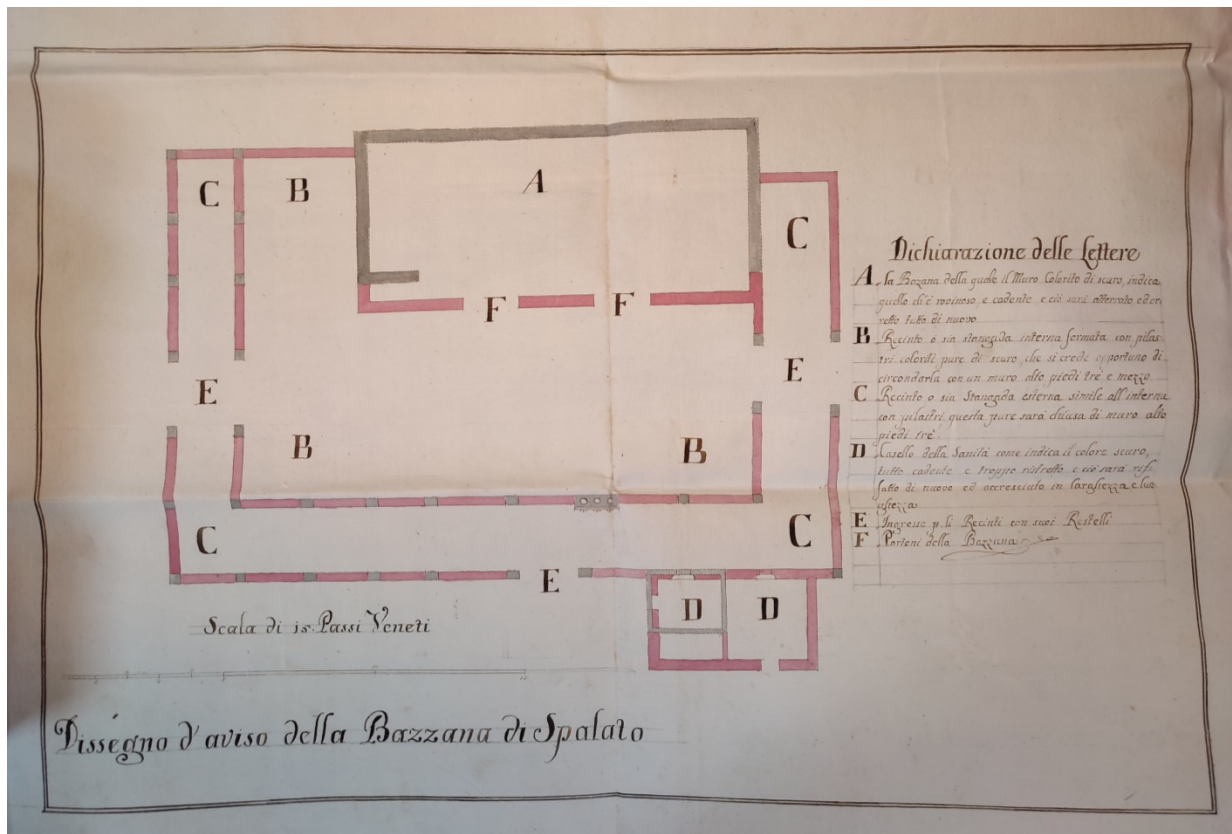 C
B
A
C
F
F
E
E
B
B
C
C
E
D
D
Dichiarazione delle Lettere
A la Bozana della quale il Muro Colorito di scuro, indica
quello ch'è rovinoso, e cadente e ciò sarà atterrato ed er
retto tutto di nuovo
B Recinto o sia stangada interna formata con pilas
tri coloriti pure di scuro, che si crede opportuno di
circondarla con un muro alto piedi trè e mezzo
C Recinto o sia Stangada esterna simile all'interna
con pilastri questa pure sarà chiusa di muro alto
piedi trè.
D Casello della Sanità come indica il colore scuro,
tutto cadente e troppo ristretto e ciò sarà rif
fatto di nuovo ed accresciuto in larghezza e lun
ghezza
E Ingresso p. li Recinti con suoi Restelli
F Porteni della Bazzana
Scala di 15. Passi Veneti
Dissegno d'aviso della Bazzana di Spalato